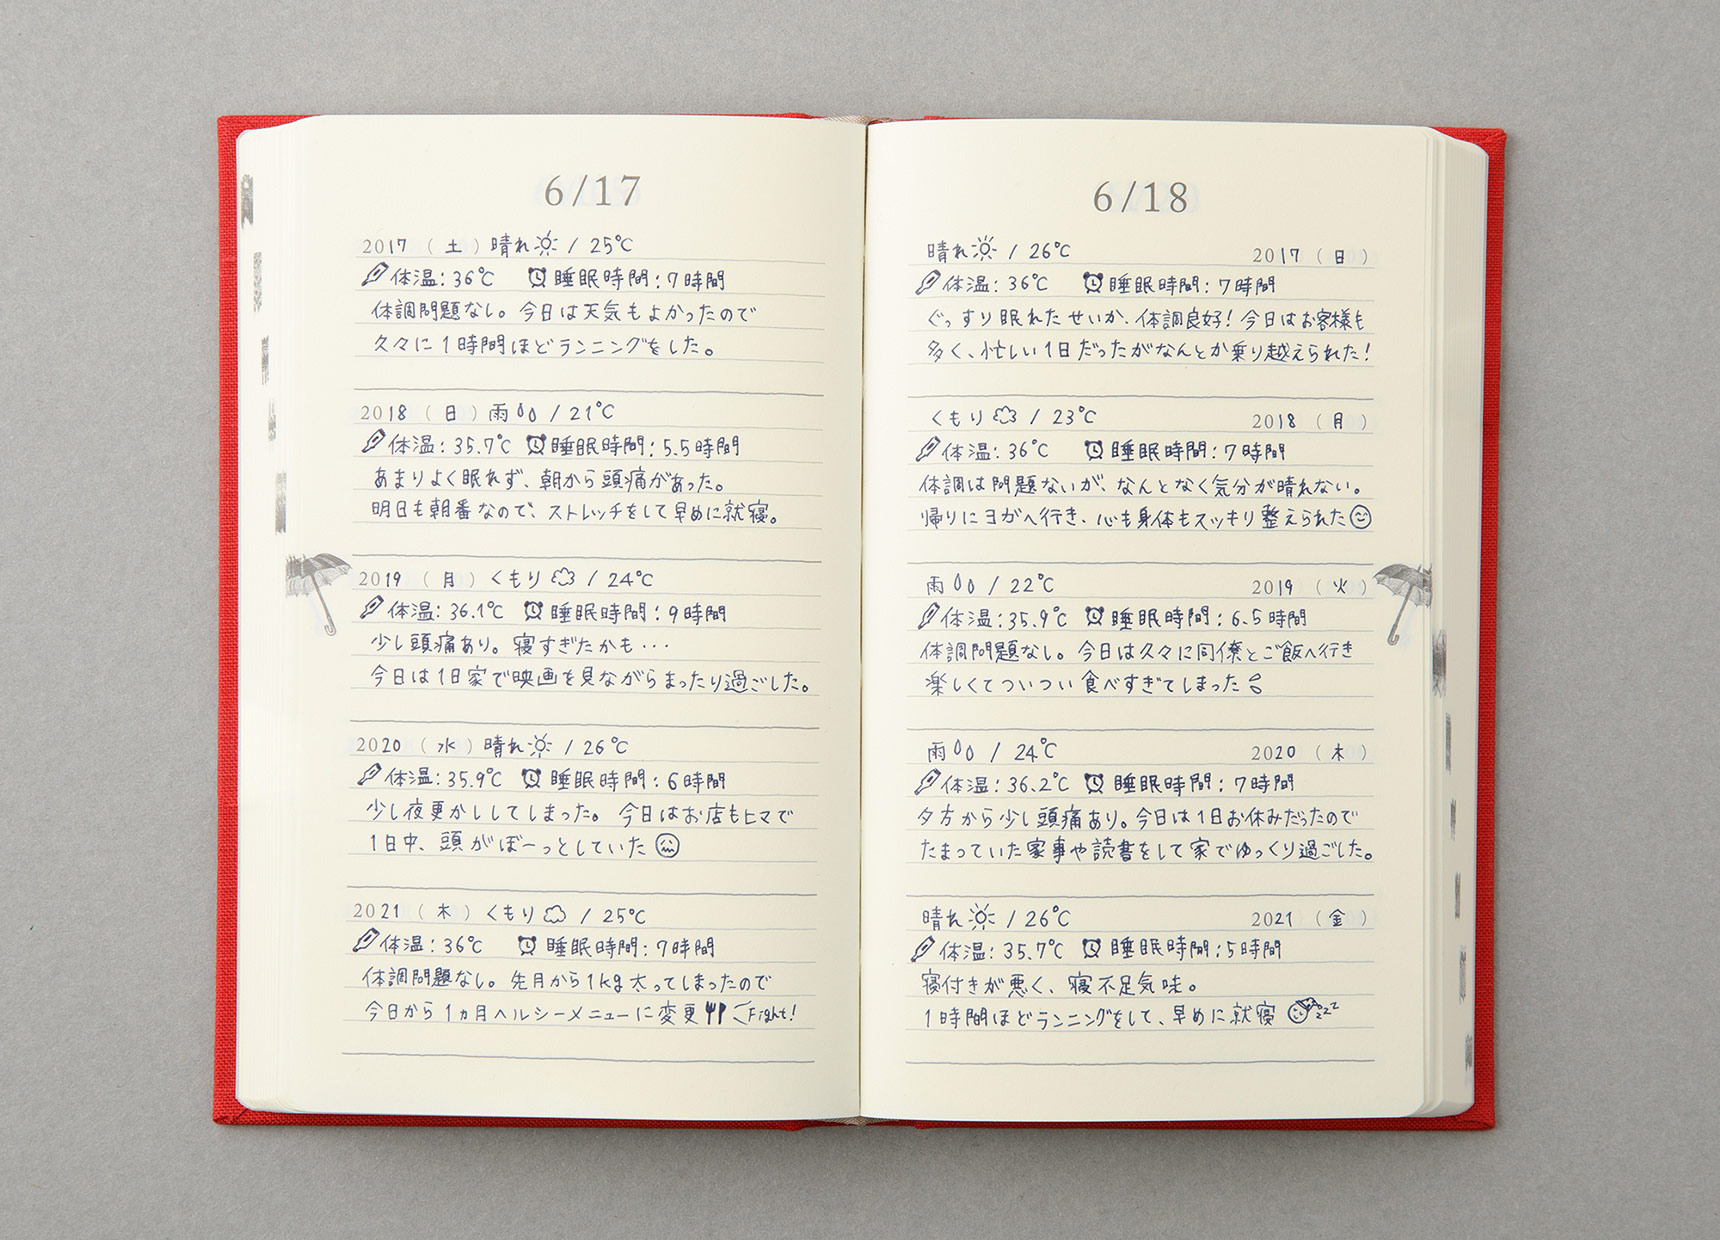 6/17
2017 (土) 晴れ / 25℃
体温: 36℃ 睡眠時間: 7時間
体調問題なし。今日は天気もよかったので
久々に1時間ほどランニングをした。
2018 (日) 雨 / 21℃
体温: 35.7℃ 睡眠時間: 5.5時間
あまりよく眠れず、朝から頭痛があった。
明日も朝番なので、ストレッチをして早めに就寝。
2019 (月) くもり / 24℃
体温: 36.1℃ 睡眠時間: 9時間
少し頭痛あり。寝すぎたかも・・・
今日は1日家で映画を見ながらまったり過ごした。
2020 (水) 晴れ / 26℃
体温: 35.9℃ 睡眠時間: 6時間
少し夜更かししてしまった。今日はお店もヒマで
1日中、頭がぼーっとしていた
2021 (木) くもり / 25℃
体温: 36℃ 睡眠時間: 7時間
体調問題なし。先月から1kg太ってしまったので
今日から1ヵ月ヘルシーメニューに変更 Fight!
6/18
晴れ / 26℃ 2017 (日)
体温: 36℃ 睡眠時間: 7時間
ぐっすり眠れたせいか、体調良好! 今日はお客様も
多く、忙しい1日だったがなんとか乗り越えられた!
くもり / 23℃ 2018 (月)
体温: 36℃ 睡眠時間: 7時間
体調は問題ないが、なんとなく気分が晴れない。
帰りにヨガへ行き、心も身体もスッキリ整えられた
雨 / 22℃ 2019 (火)
体温: 35.9℃ 睡眠時間: 6.5時間
体調問題なし。今日は久々に同僚とご飯へ行き
楽しくてついつい食べすぎてしまった
雨 / 24℃ 2020 (木)
体温: 36.2℃ 睡眠時間: 7時間
夕方から少し頭痛あり。今日は1日お休みだったので
たまっていた家事や読書をして家でゆっくり過ごした。
晴れ / 26℃ 2021 (金)
体温: 35.7℃ 睡眠時間: 5時間
寝付きが悪く、寝不足気味。
1時間ほどランニングをして、早めに就寝 zzz